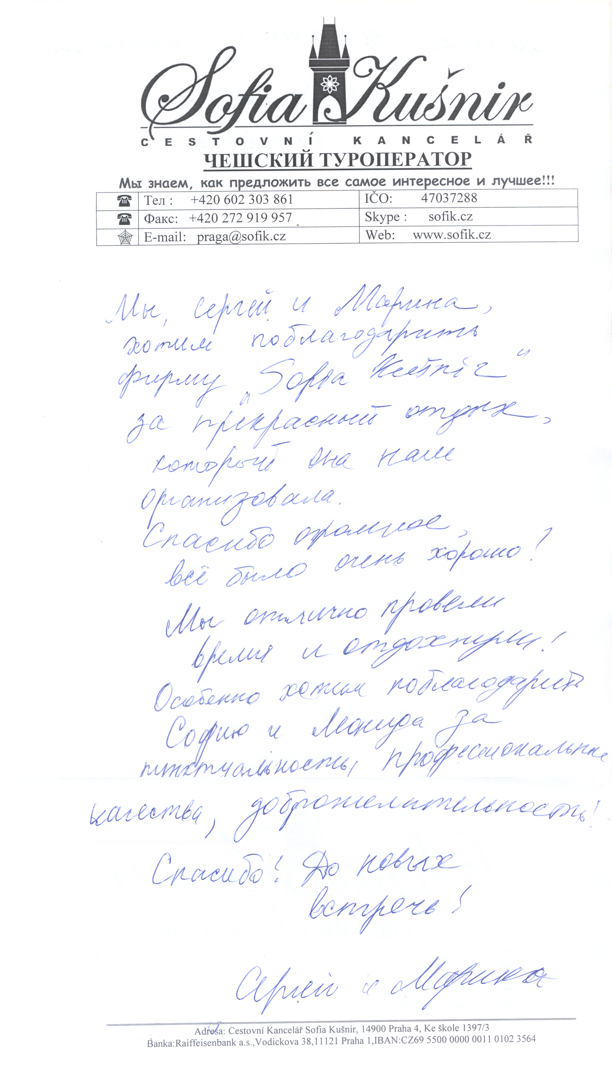 Sofia Kušnir
CESTOVNÍ KANCELÁŘ
ЧЕШСКИЙ ТУРОПЕРАТОР
Мы знаем, как предложить все самое интересное и лучшее!!!
Тел : +420 602 303 861 IČO: 47037288
Факс: +420 272 919 957 Skype : sofik.cz
E-mail: praga@sofik.cz Web: www.sofik.cz
Мы, Сергей и Марина,
хотим поблагодарить
фирму „Sofia Kušnir“
за прекрасный отдых,
который она нам
организовала.
Спасибо огромное,
всё было очень хорошо!
Мы отлично провели
время и отдохнули!
Особенно хотим поблагодарить
Софию и Леонида за
пунктуальность, профессиональные
качества, доброжелательность!
Спасибо! До новых
встреч!
Сергей и Марина
Adresa: Cestovní Kancelář Sofia Kušnir, 14900 Praha 4, Ke škole 1397/3
Banka:Raiffeisenbank a.s.,Vodickova 38,11121 Praha 1,IBAN:CZ69 5500 0000 0011 0102 3564